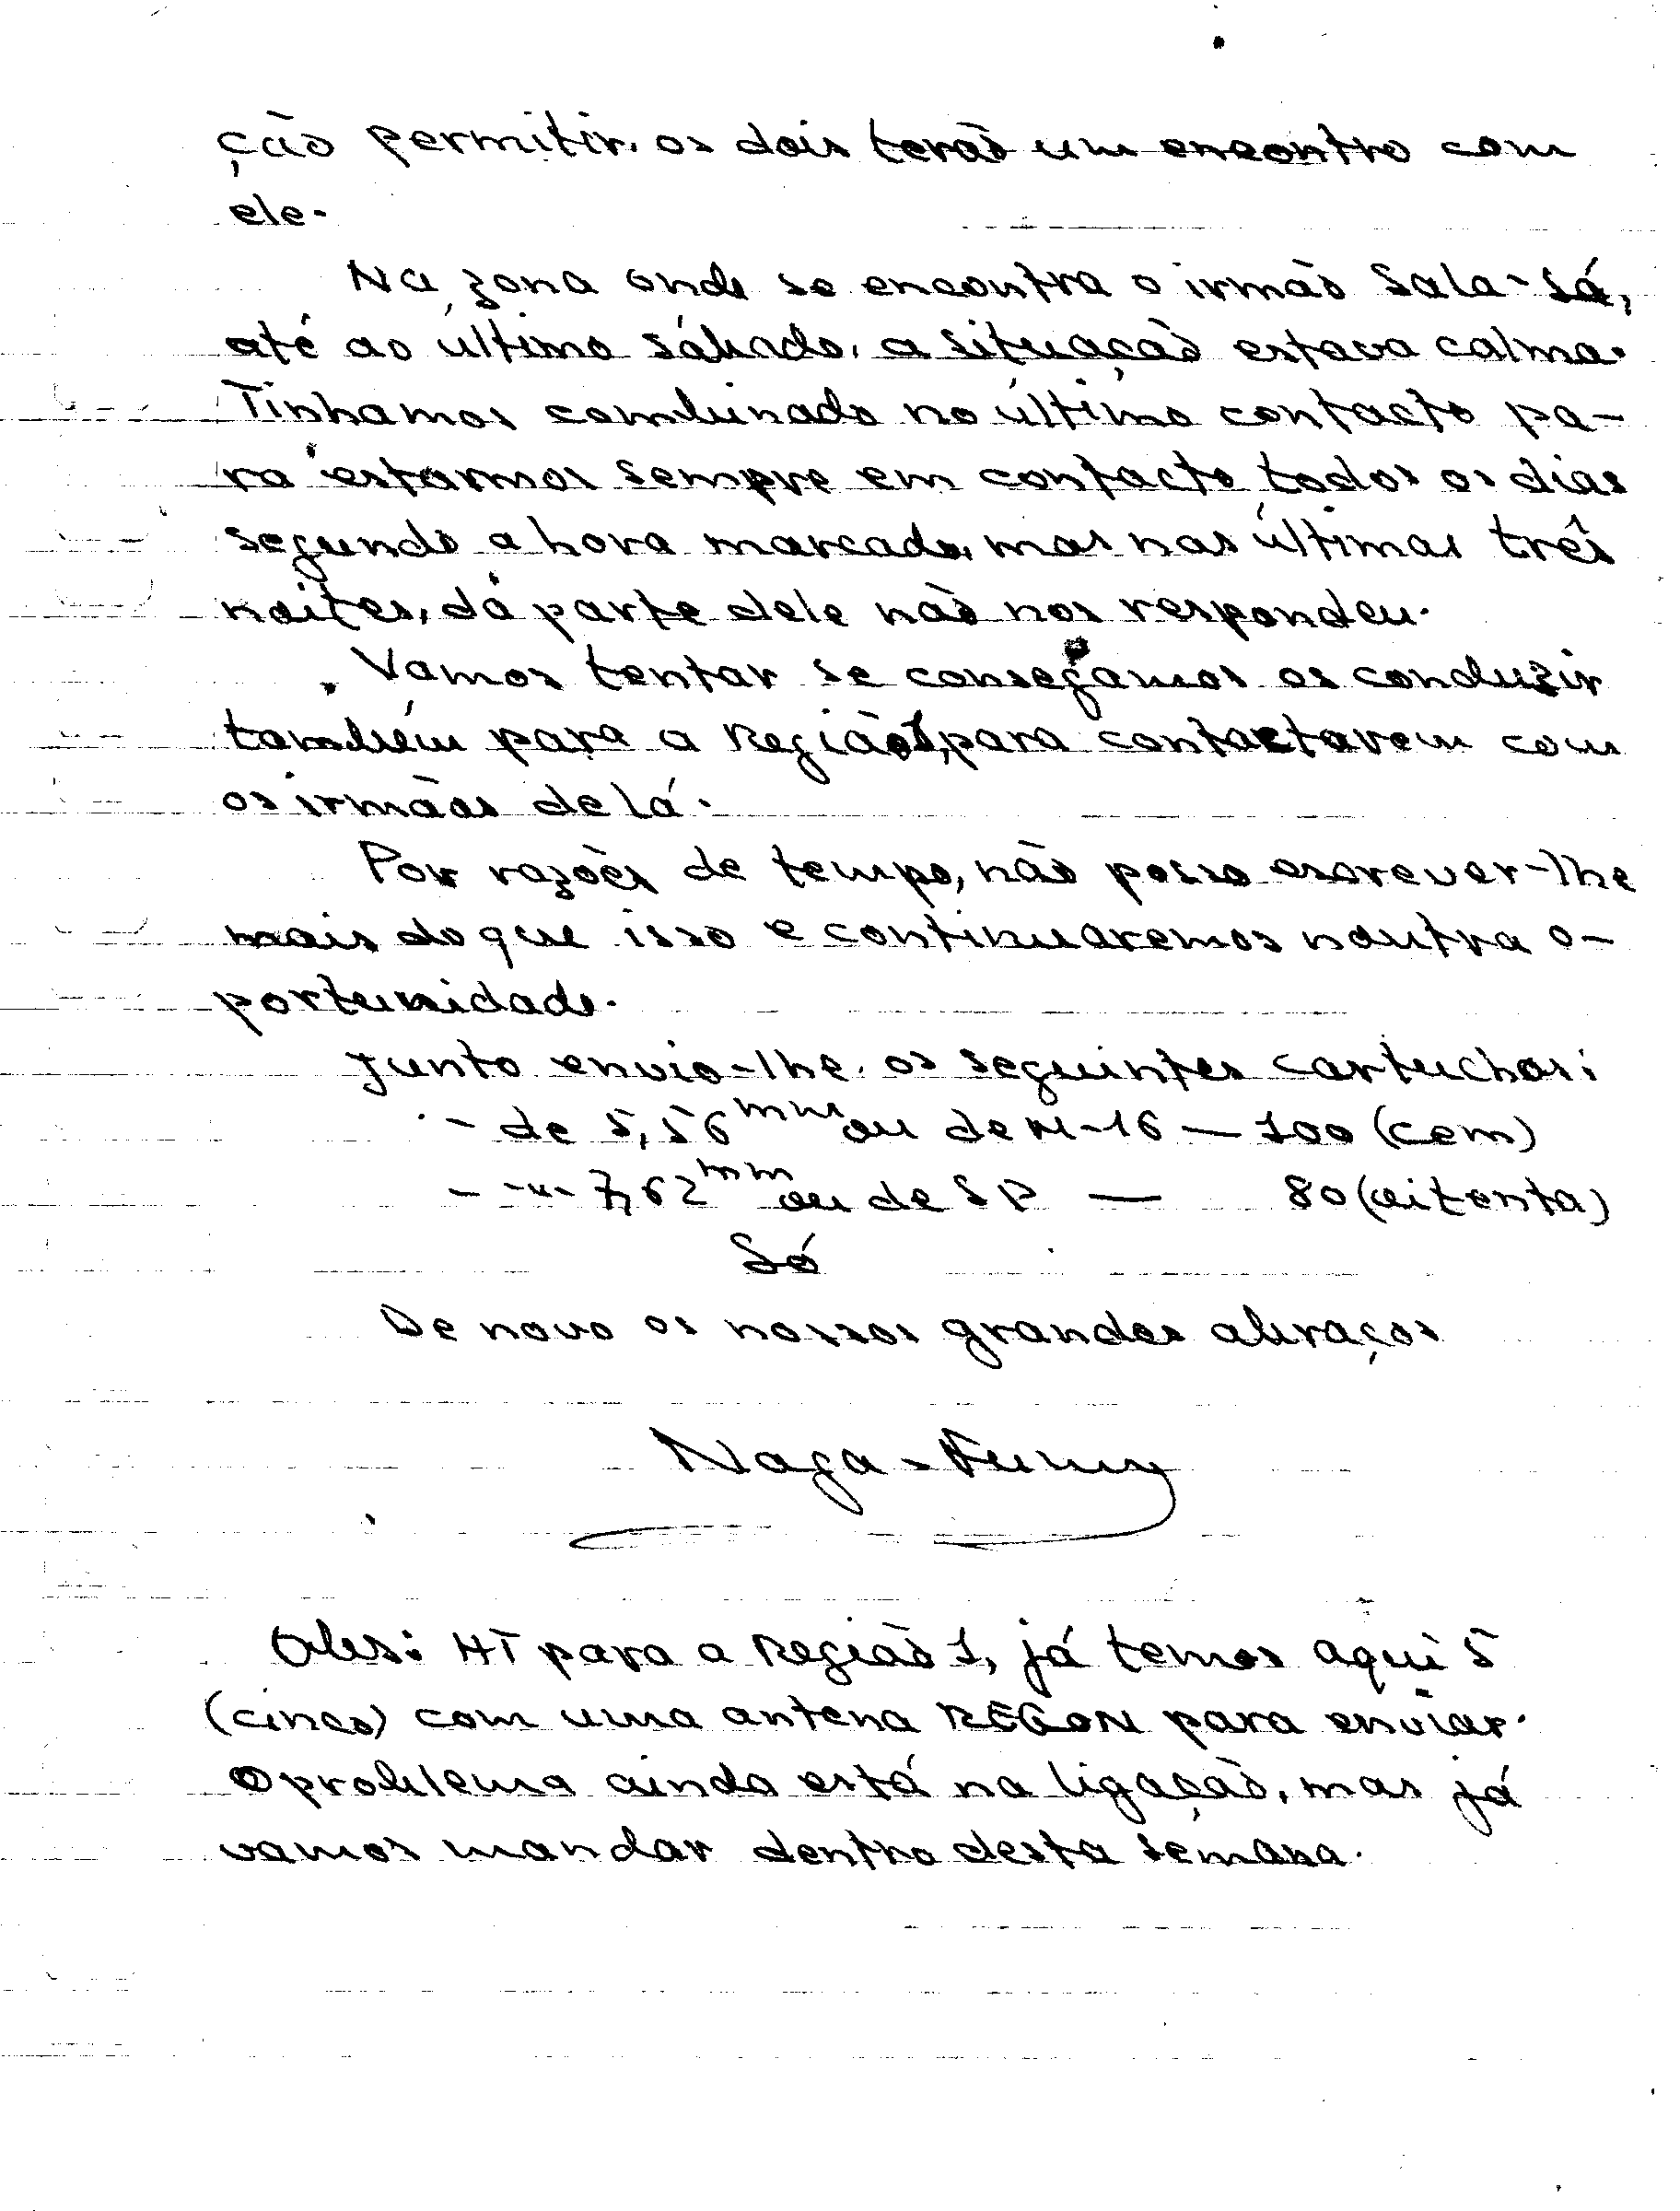 ção permitir, os dois terão um encontro com
ele.
Na zona onde se encontra o irmão Sala-Sá,
até ao último sábado, a situação estava calma.
Tinhamos combinado no último contacto pa-
ra estarmos sempre em contacto todos os dias
segundo a hora marcada, mas nas últimas três
noites, da parte dele não nos respondeu.
Vamos tentar se consegamos os conduzir
também para a Região 1, para contactarem com
os irmãos de lá.
Por razões de tempo, não posso escrever-lhe
mais do que isso e continuaremos noutra o-
portunidade.
Junto envio-lhe, os seguintes cartuchos:
- de 5,56 mm ou de M-16 — 100 (cem)
- -"- 7,62 mm ou de SP — 80 (oitenta)
Só
De novo os nossos grandes abraços
Naga-
Obs: HT para a Região 1, já temos aqui 5
(cinco) com uma antena REGON para enviar.
O problema ainda está na ligação, mas já
vamos mandar dentro desta semana.